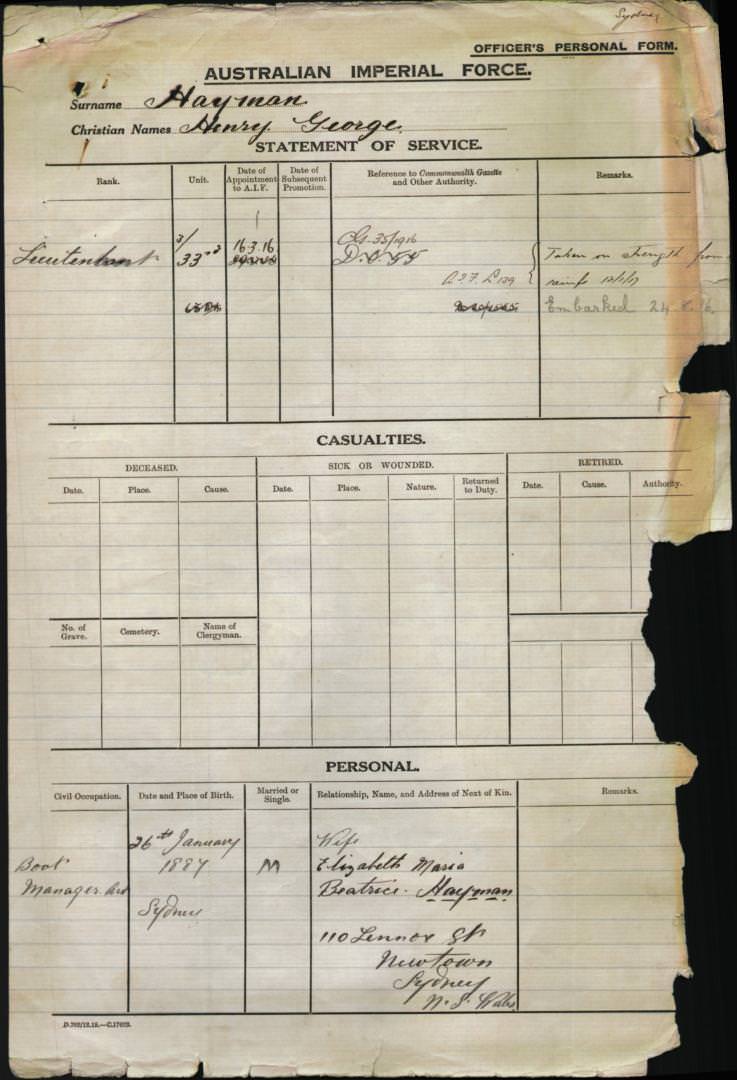 Sydney
OFFICER'S PERSONAL FORM.
AUSTRALIAN IMPERIAL FORCE.
Surname Hayman
Christian Names Henry George
STATEMENT OF SERVICE.
Rank.
Unit.
Date of Appointment to A.I.F.
Date of Subsequent Promotion.
Reference to Commonwealth Gazette and Other Authority.
Remarks.
Lieutenant
3/
33rd
16.3.16
CG. 35/1916
D.O. 55
Taken on strength from
A.I.F. L 139
reinfs 12/1/17
Embarked 24.8.16.
CASUALTIES.
DECEASED.
SICK OR WOUNDED.
RETIRED.
Date. Place. Cause. Date. Place. Nature. Returned to Duty. Date. Cause. Authority.
No. of Grave. Cemetery. Name of Clergyman.
PERSONAL.
Civil Occupation. Date and Place of Birth. Married or Single. Relationship, Name, and Address of Next of Kin. Remarks.
Boot
Manager
26th January
1887
Sydney
M
Wife
Elizabeth Maria
Beatrice Hayman
110 Lennox St
Newtown
Sydney
N.S. Wales
D.792/12.15.—C.17023.